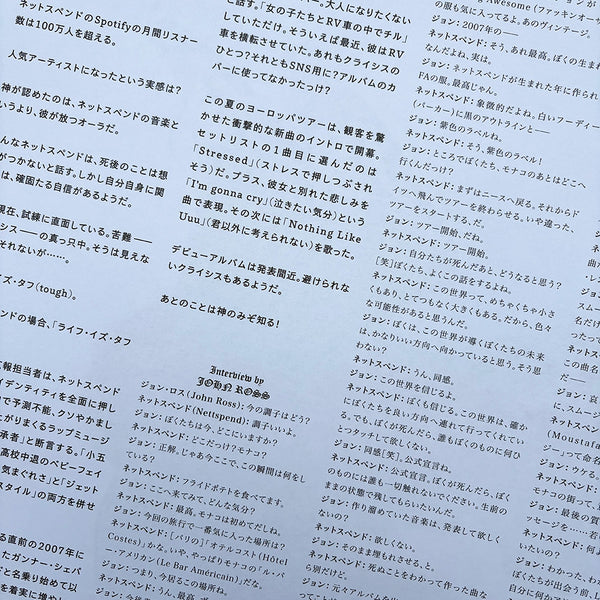 ネットスペンドのSpotifyの月間リスナー
数は100万人を超える。
人気アーティストになったという実感は?
神が認めたのは、ネットスペンドの音楽と
いうより、彼が放つオーラだ。
んなネットスペンドは、死後のことは想
がつかないと話す。しかし自分自身に関
は、確固たる自信があるようだ。
現在、試練に直面している。苦難——
シス——の真っ只中。そうは見えな
それないが……。
イズ・タフ(tough)。
ンドの場合、「ライフ・イズ・タフ
広報担当者は、ネットスペンド
イデンティティを全面に押し
で予測不能、クソやかまし
上がりまくるラップミュージ
承者」と断言する。「小五
高校中退のベビーフェイ
気まぐれさ」と「ジェット
スタイル」の両方を併せ
る直前の2007年に
たガンナー・シェパ
ドと名乗り始めて以
大人になりたくない
と話す。「女の子たちとRV車の中でチル」
していただけ。そういえば最近、彼はRV
車を横転させていた。あれもクライシスの
ひとつ?それともSNS用に?アルバムのカ
バーに使ってなかったっけ?
この夏のヨーロッパツアーは、観客を驚
かせた衝撃的な新曲のイントロで開幕。
セットリストの1曲目に選んだのは
「Stressed」(ストレスで押しつぶされ
そう)だ。プラス、彼女と別れた悲しみを
「I'm gonna cry」(泣きたい気分)という
曲で表現。その次には「Nothing Like
Uuu」(君以外に考えられない)を歌った。
デビューアルバムは発表間近。避けられな
いクライシスもあるようだ。
あとのことは神のみぞ知る!
Interview by
JOHN ROSS
ジョン・ロス(John Ross):今の調子はどう?
ネットスペンド(Nettspend):調子いいよ。
ジョン:ぼくたちは今、どこにいますか?
ネットスペンド:どこだっけ?モナコ?
ジョン:正解。じゃあ今ここで、この瞬間は何をし
ている?
ネットスペンド:フライドポテトを食べてます。
ジョン:ここへ来てみて、どんな気分?
ネットスペンド:最高。モナコは初めてだしね。
ジョン:今回の旅行で一番気に入った場所は?
ネットスペンド:[パリの]「オテルコスト(Hôtel
Costes)」かな。いや、やっぱりモナコの「ル・バ
ー・アメリカン(Le Bar Américain)」だな。
ジョン:つまり、今居るこの場所ね。
ネットスペンド:うん、最高。
の服も気に入ってるよ。あのヴィンテージ。
ジョン:2007年の——
ネットスペンド:そう、あれ最高。ぼくの生まれ
なんだよね、実は。
ジョン:ネットスペンドが生まれた年に作られ
FAの服。最高じゃん。
ネットスペンド:象徴的だよね。白いフーディー
(パーカー)に黒のアウトラインと——
ジョン:紫色のラベルね。
ネットスペンド:そう、紫色のラベル!
ジョン:ところでぼくたち、モナコのあとはどこへ
行くんだっけ?
ネットスペンド:まずはニースへ戻る。それからド
イツへ飛んでツアーを終わらせる。いや違った、
ツアーをスタートする、だ。
ジョン:ツアー開始、だね。
ネットスペンド:ツアー開始。
ジョン:自分たちが死んだあと、どうなると思う?
[笑]ぼくたち、よくこの話をするよね。
ネットスペンド:この世界って、めちゃくちゃ小さ
くもあり、とてつもなく大きくもある。だから、色々
な可能性があると思うんだ。
ジョン:ぼくは、この世界が導くぼくたちの未来
は、かなりいい方向へ向かっていると思う。そう思
わない?
ネットスペンド:うん、同感。
ジョン:この世界を信じるよ。
ネットスペンド:ぼくも信じてる。この世界は、確か
にぼくたちを良い方向へ連れて行ってくれてい
る。でも、ぼくが死んだら、誰もぼくのものに何ひ
とつタッチして欲しくない。
ジョン:同感[笑]。公式宣言ね。
ネットスペンド:公式宣言。ぼくが死んだら、ぼく
のものには誰も一切触れないでください。生前の
ままの状態で残してもらいたいんだ。
ジョン:作り溜めていた音楽は、発表して欲しく
ないの?
ネットスペンド:欲しくない。
ジョン:そのまま埋もれさせる、と。
ネットスペンド:死ぬことをわかって作った曲な
ら別だけど。